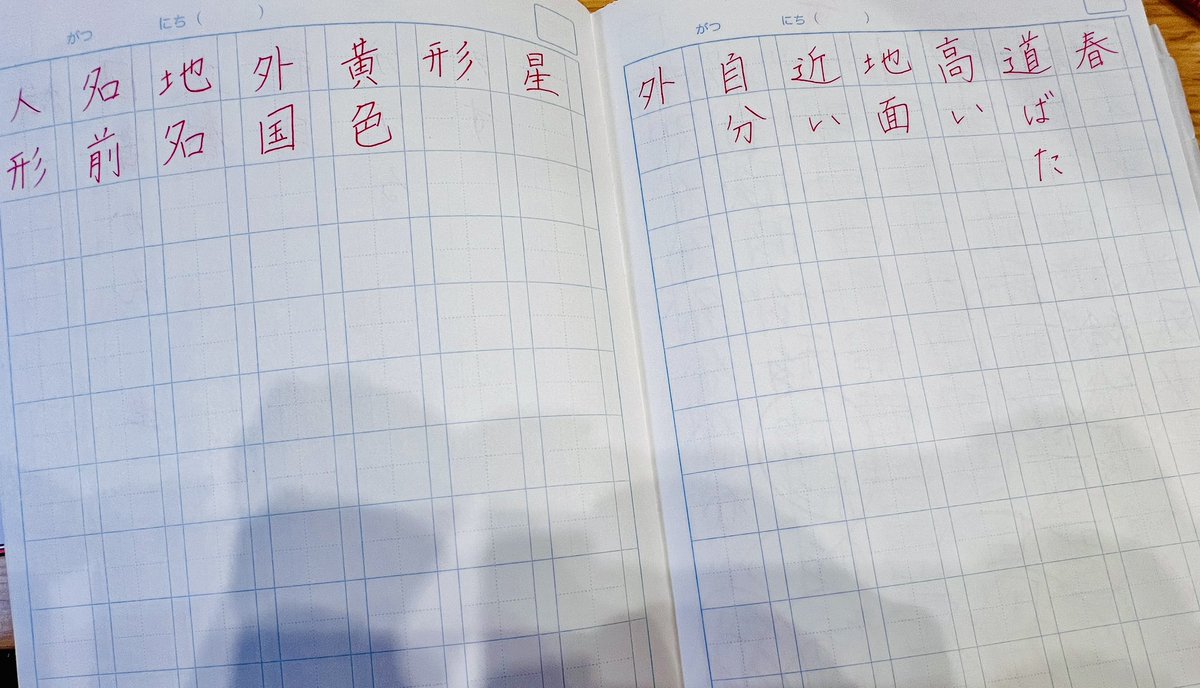 がつ にち( )
春
道ばた
高い
地面
近い
自分
外
がつ にち( )
星
形
黄色
外国
地名
名前
人形